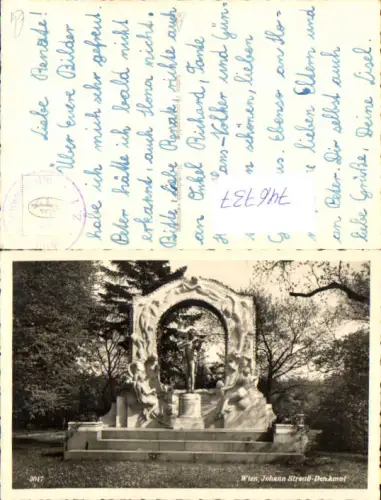 Liebe Renate!
Über eure Bilder
habe ich mich sehr gefreut
Peter hätte ich bald nicht
erkannt, auch Ilona nicht.
Bitte liebe Renate richte auch
an Onkel Richard, Tante
ans-Volker und Gün-
schönen, lieben
Ebenso an Ilo-
lieben Eltern und
an Peter. Dir selbst auch
liebe Grüße, Deine Liesl.
746737
3017
Wien, Johann Strauß-Denkmal